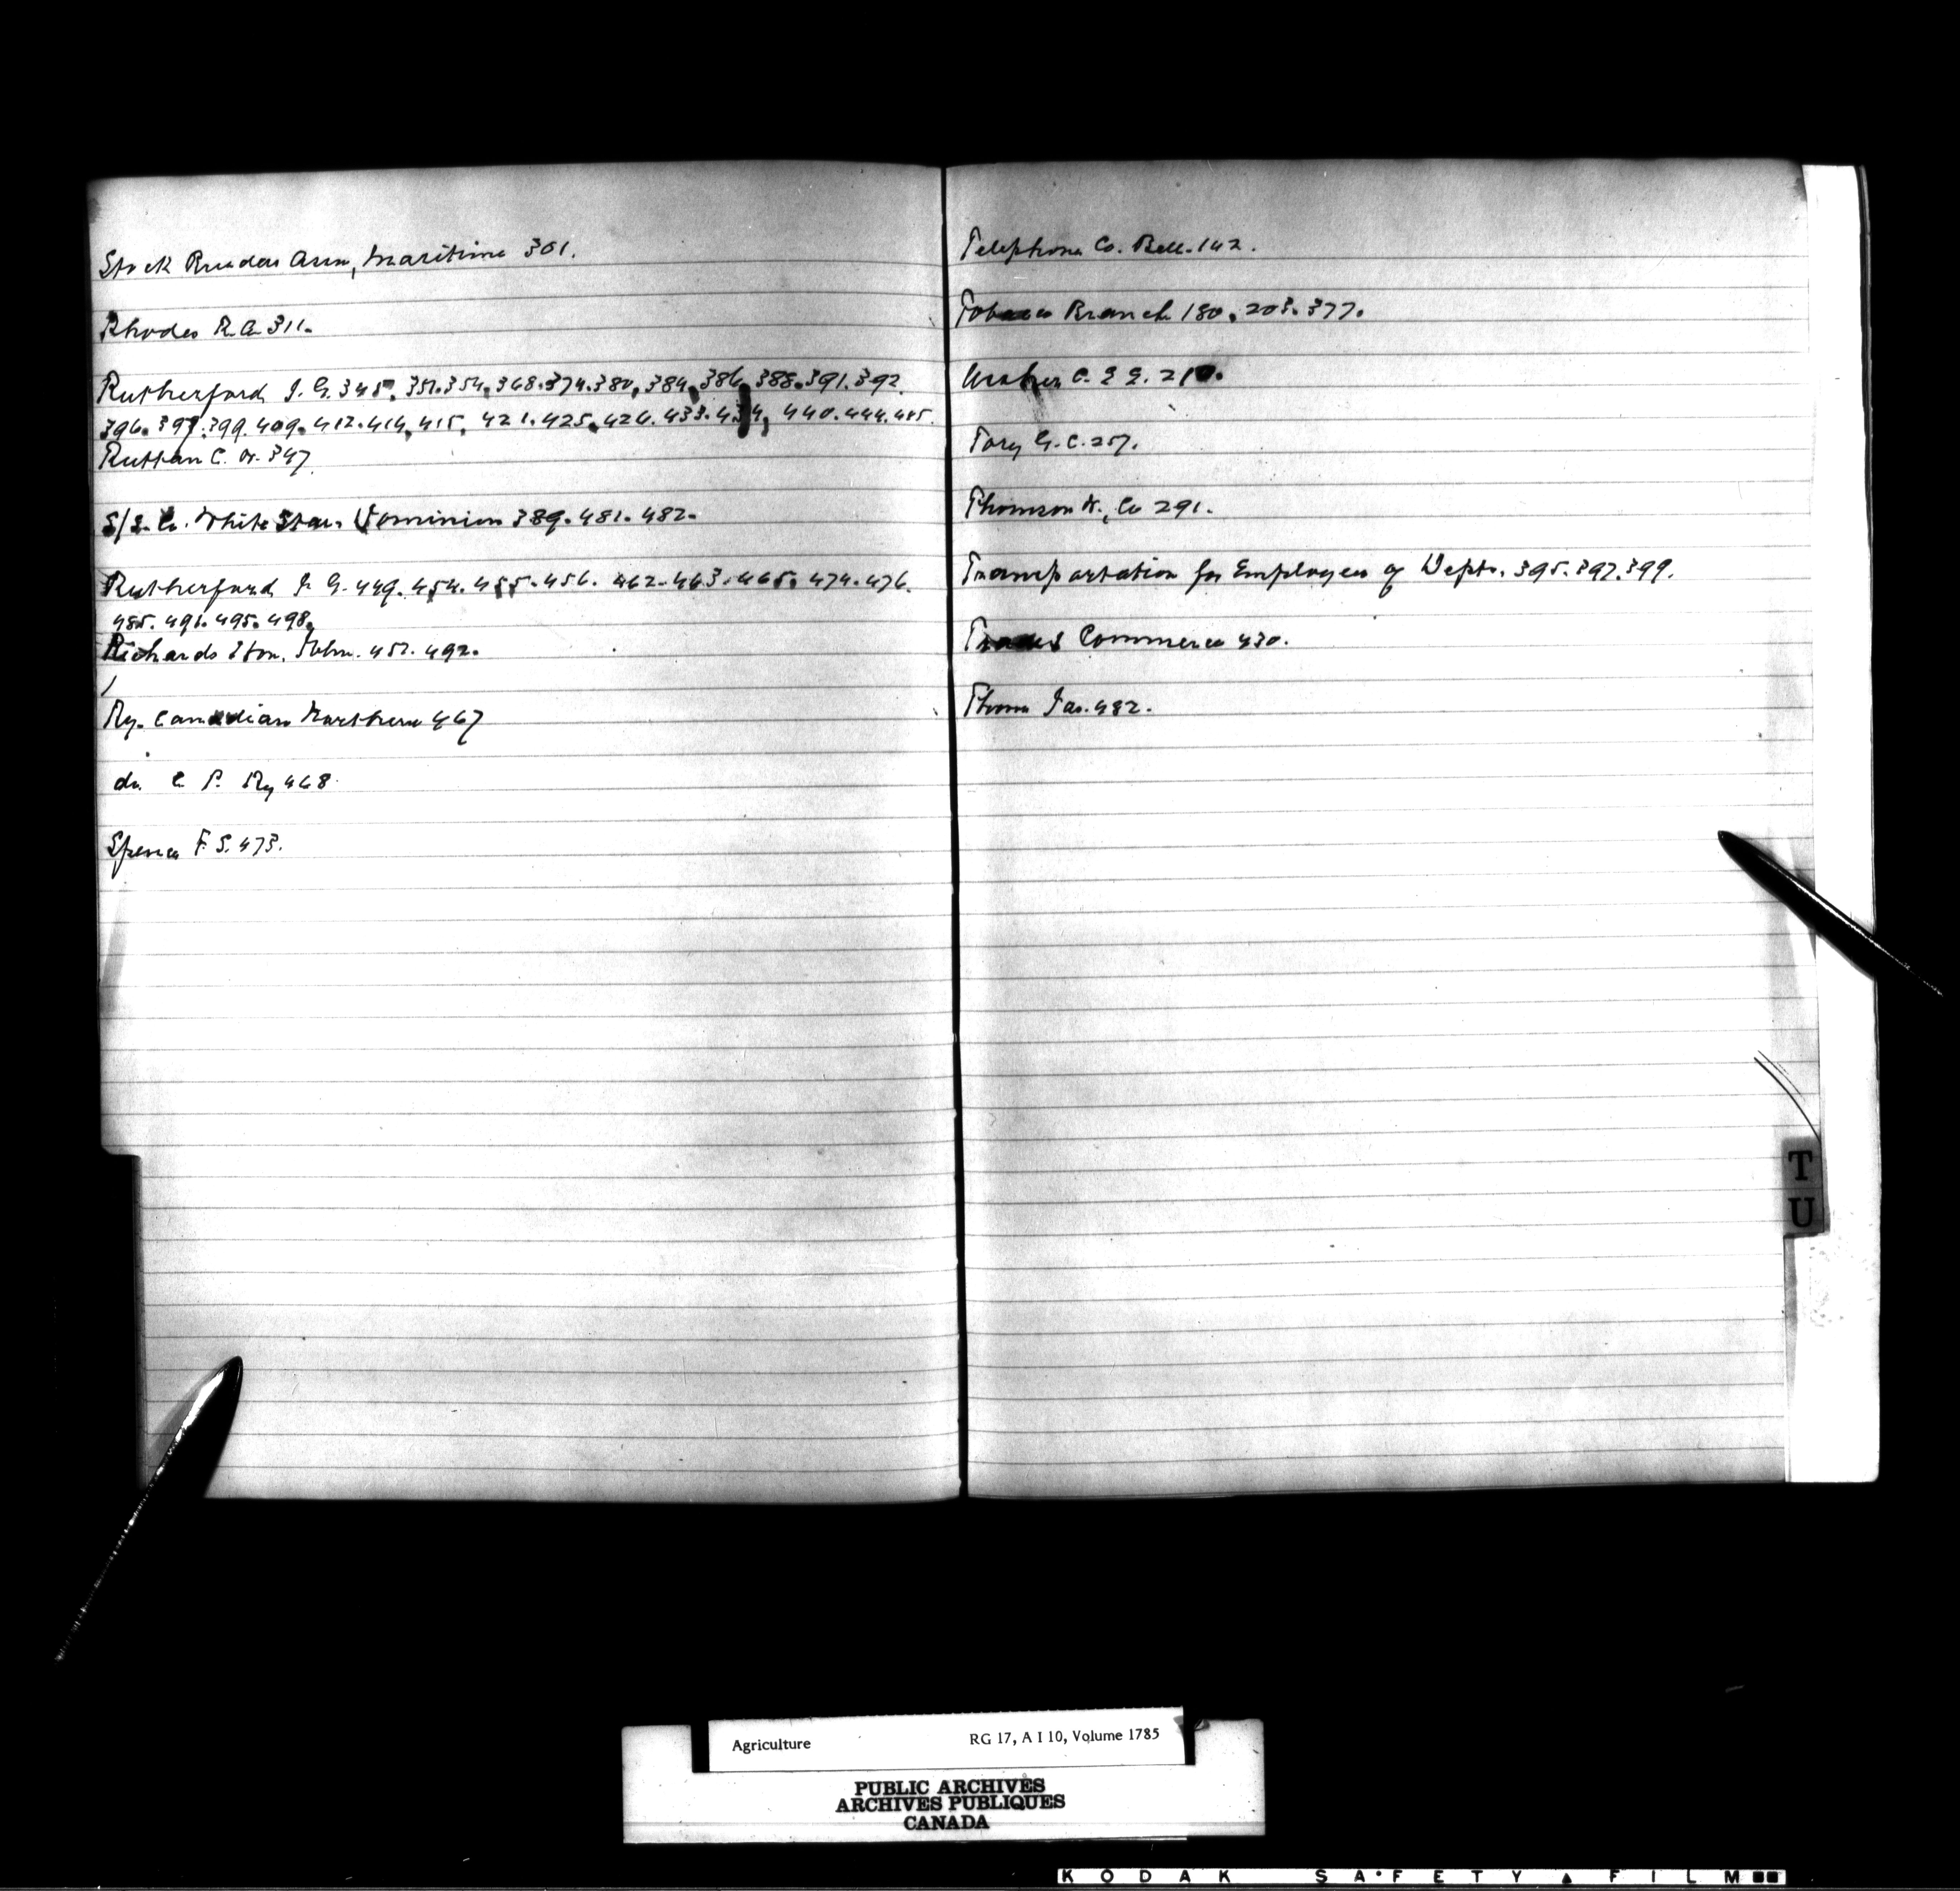 Stock Breeders Assn, Maritime 301.
Rhodes R. A. 311.
Rutherford J. G. 345, 351. 354, 368. 374. 380, 384, 386, 388. 391. 392.
396. 397. 399. 409. 412. 414, 415, 421. 425. 426. 433. 434, 440. 444. 445.
Ruttan C. 347.
S/S. Co. White Star Dominion 389. 481. 482.
Rutherford J. G. 449. 454. 455. 456. 462. 463. 465. 474. 476.
485. 491. 495. 498.
Richards Hon. John. 457. 492.
Ry. Canadian Northern 467
do. C P. Ry 468.
Spence F. S. 473.
Telephone Co. Bell. 142.
Tobacco Branch 180, 203. 377.
C. E E. 210.
Tory G. C. 257.
Thomson, Co 291.
Transportation for Employees of Dept. 395. 397. 399.
Trade & Commerce 430.
Thom Jas. 482.
T
U
Agriculture RG 17, A I 10, Volume 1785
PUBLIC ARCHIVES
ARCHIVES PUBLIQUES
CANADA
KODAK SAFETY FILM